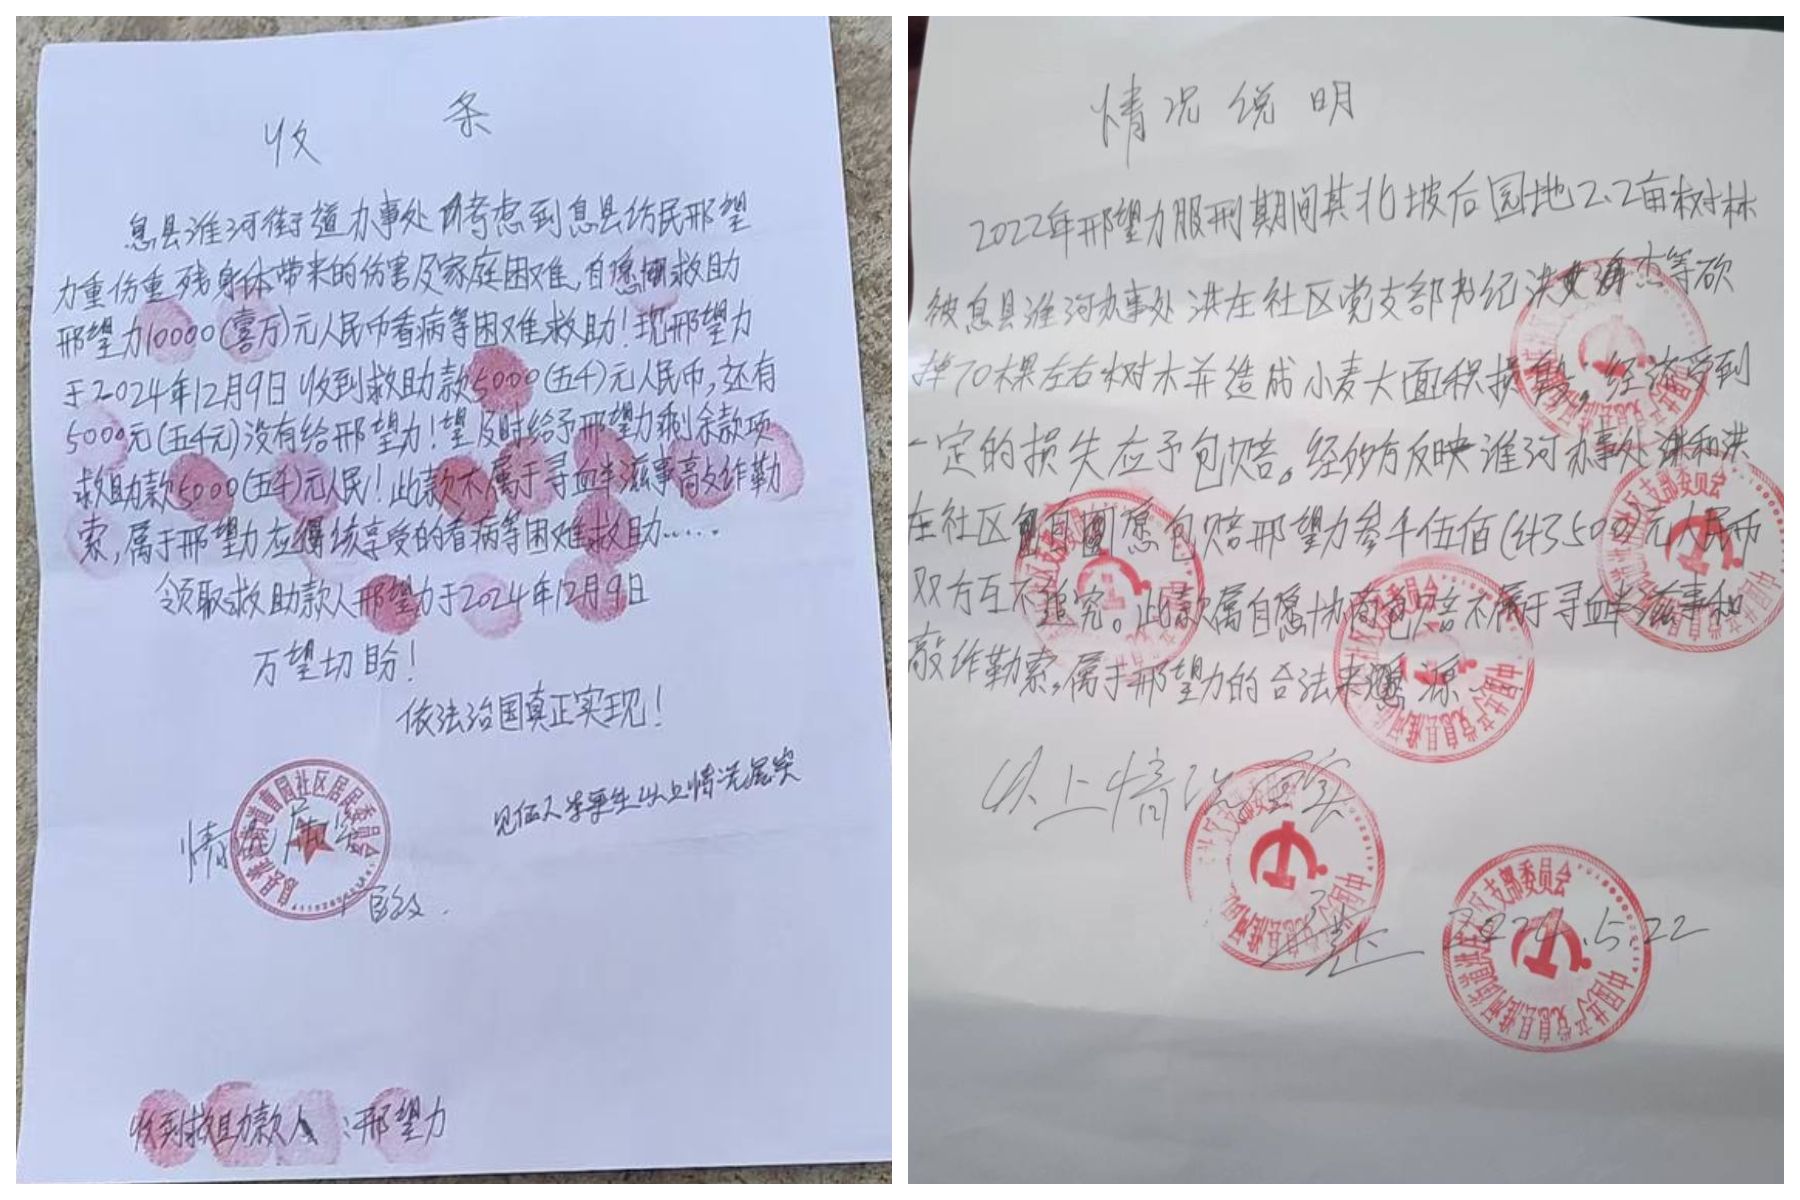 收 条
息县淮河街道办事处考虑到息县访民邢望
力重伤重残身体带来的伤害及家庭困难,自愿救助
邢望力10000(壹万)元人民币看病等困难救助!现邢望力
于2024年12月9日收到救助款5000(五千)元人民币,还有
5000元(五千元)没有给邢望力!望及时给予邢望力剩余款项
救助款5000(五千)元人民!此款不属于寻衅滋事敲诈勒
索,属于邢望力应得该享受的看病等困难救助……
领取救助款人邢望力于2024年12月9日
万望切盼!
依法治国真正实现!
见证人 以上情况属实
情况属实
南园社区居民委员会
收到救助款人:邢望力
情况说明
2022年邢望力服刑期间其北坡后园地2.2亩树林
被息县淮河办事处洪庄社区党支部书记洪海杰等砍
掉70棵左右树木并造成小麦大面积损毁。经济受到
一定的损失应予包赔。经多方反映淮河办事处和洪
庄社区自愿包赔邢望力叁千伍佰(计3500元人民币
双方互不追究。此款属自愿协商包赔不属于寻衅滋事和
敲诈勒索,属于邢望力的合法来源
以上情况属实
2024.5.22
中国共产党息县淮河街道洪庄社区支部委员会